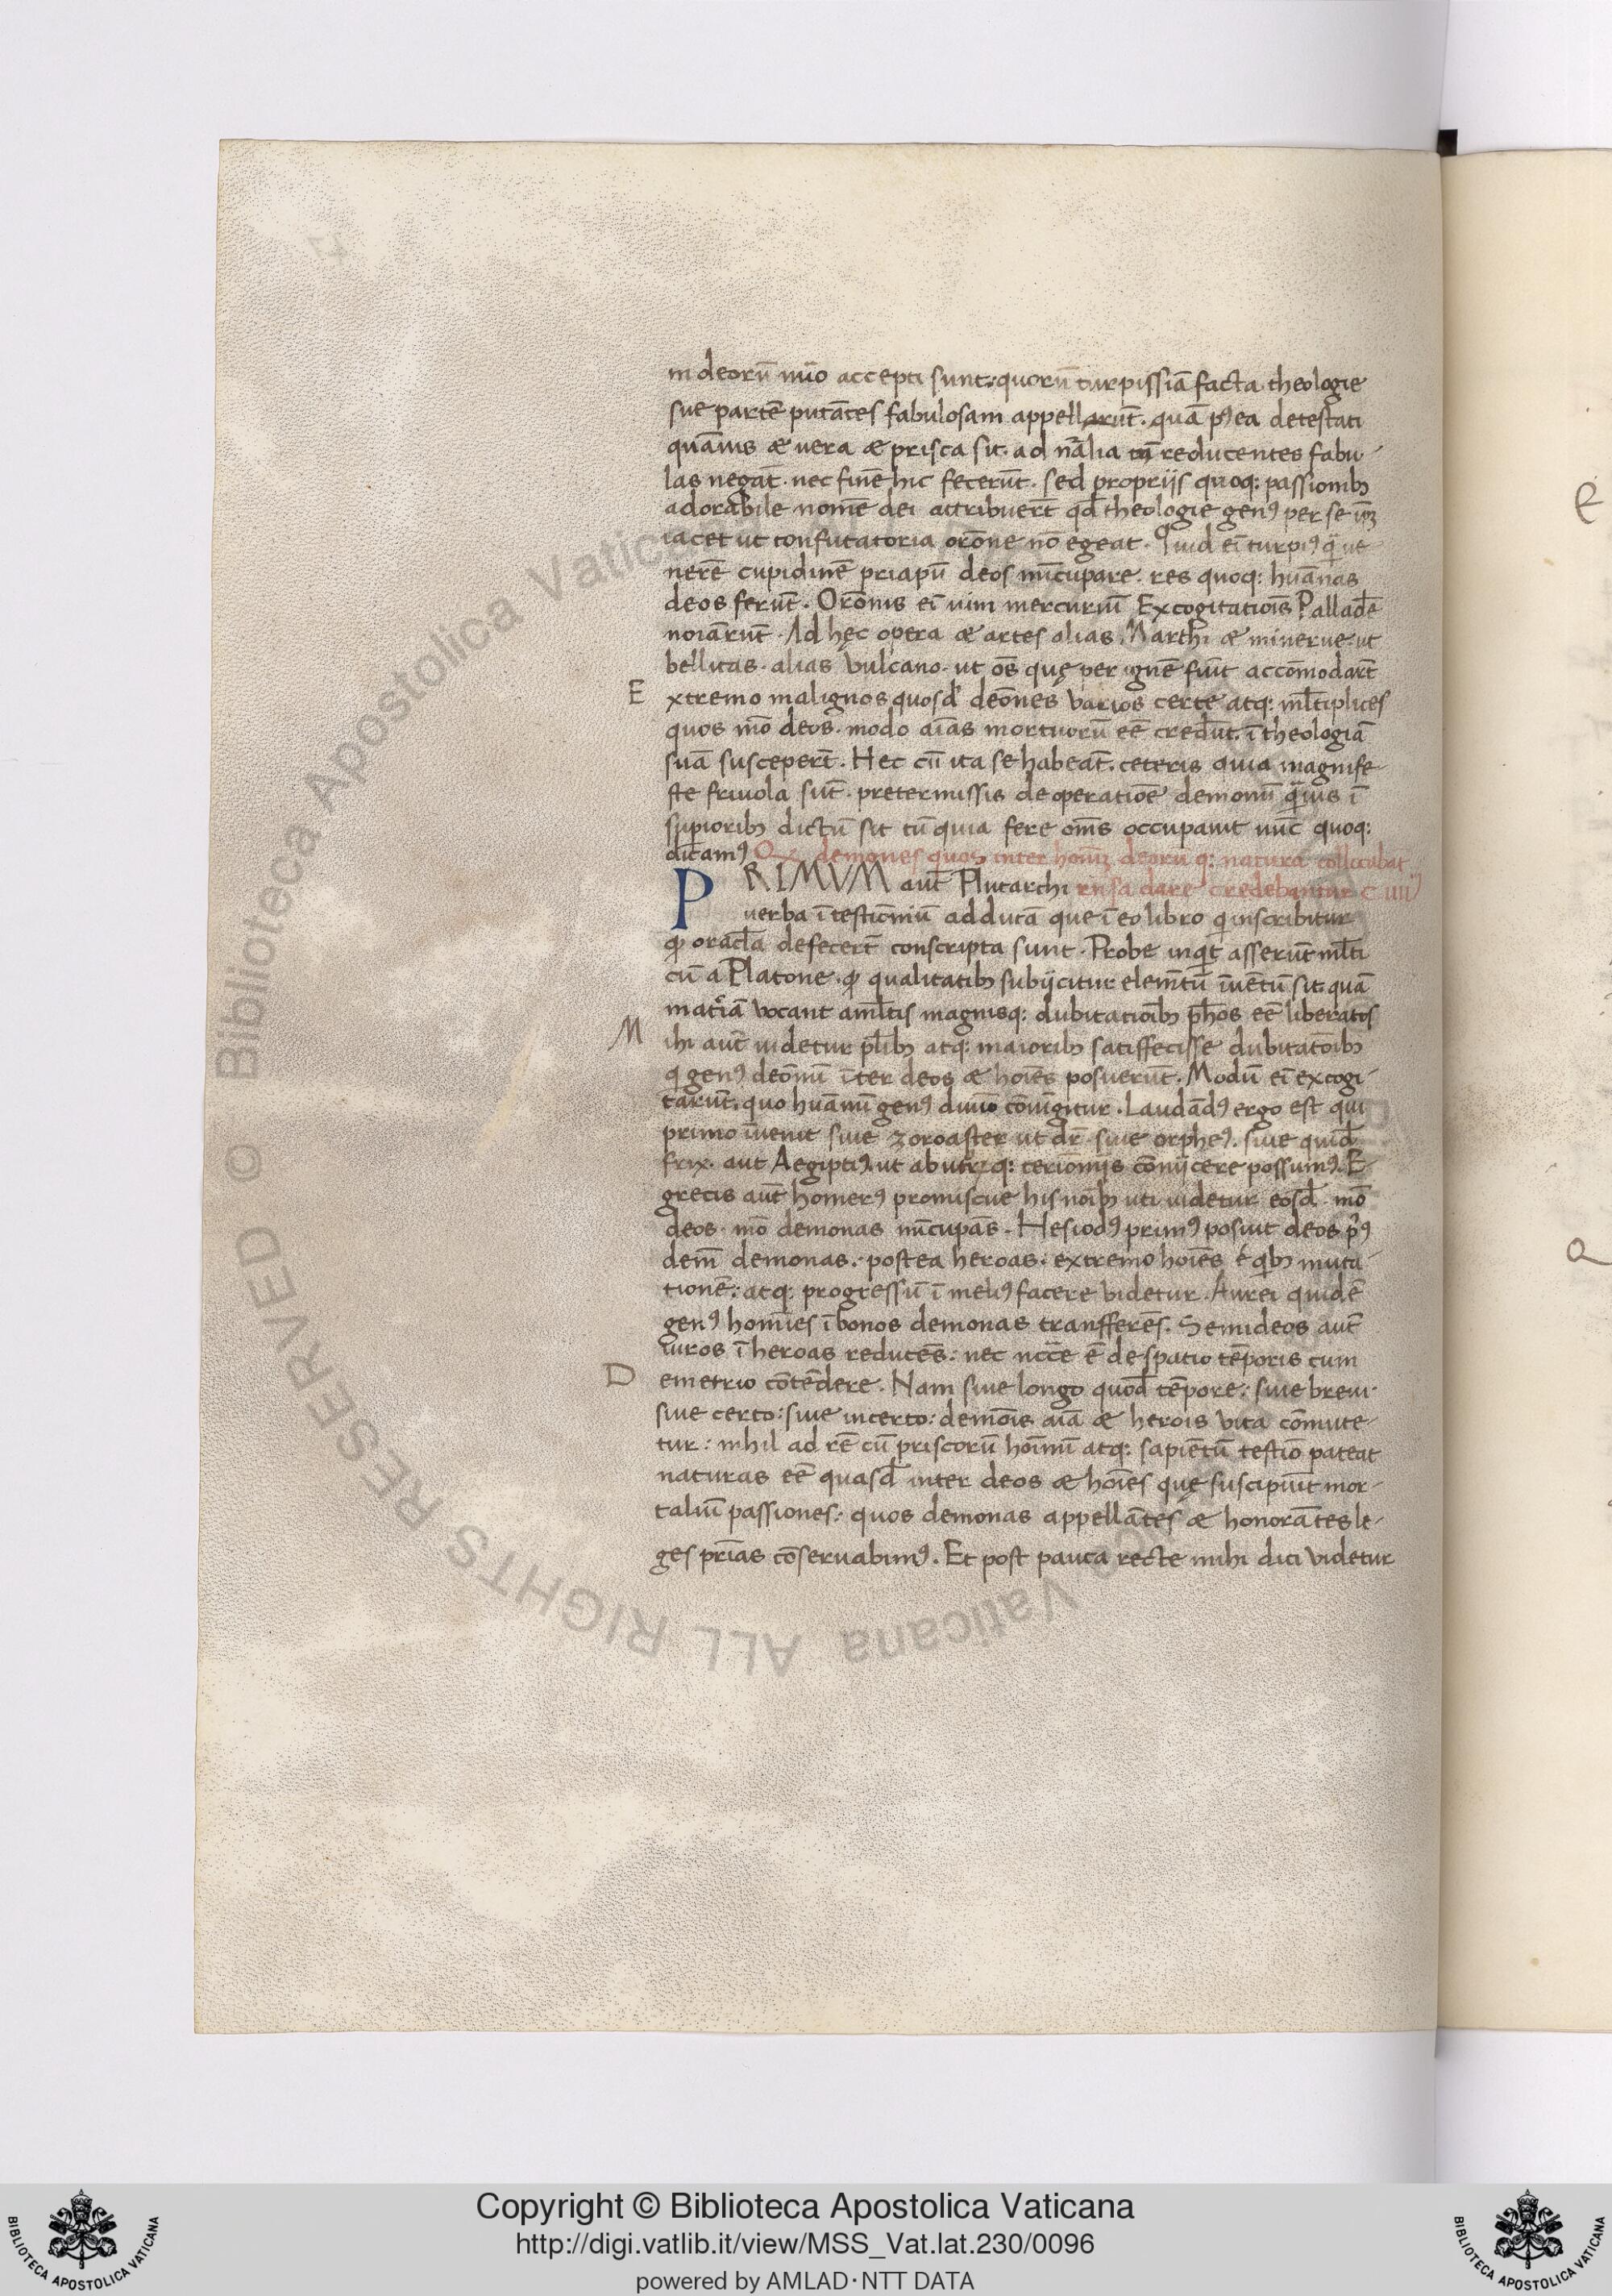 in deorū nūo accepti sunt: quorū turpissiā facta theologie
sue partē putātes fabulosam appellarūt. quā p'ea detestati
quāuis æ uera æ prisca sit. ad nālia reducentes fabu-
las negāt. nec finē hic fecerūt. sed proprijs quoq: passionib;
adorabile nomē dei attribuerēt qđ theologie gen9 per se
iacet ut confutatoria orōne nō egeat. Quid eī turpi9 q̄ ue
nerē cupidinē priapū deos nūcupare. res quoq: huānas
deos ferūt. Orōnis eī uim mercuriū Excogitatiōis Palladē
noiārūt. Ad hęc opera æ artes alias Marthi æ minerue. ut
bellicas. alias Vulcano. ut oēs quę per ignē fiūt accōmodarūt
E xtremo malignos quosđ deōnes varios certe atq: ml̄tiplices
quos mō deos. modo aīas mortuorū eē credūt. ī theologiā
suā susceperūt. Hec cū ita se habeāt. ceteris quia magnife
ste friuola sūt. pretermissis de operatiōe demonū q̄uis ī
supiorib; dictū sit tū quia fere oms occupauit nūc quoq:
dicam9 demones quos inter homīu deorū q: natura collocabāt
PRIMVM aut Plutarchi rnsa dare credebantur C IIII
uerba ī testiōniū adducā que ī eo libro q inscribitur
q oracl̄a defecerūt conscripta sunt. Probe inqt asserūt ml̄ti
cū a Platone. q qualitatib; subijcitur elemētū īuētū sit. quā
matiā vocant aml̄tis magnisq: dubitatiōib; ph̄os eē liberatos
M ihi aut uidetur pl̄ib; atq: maiorib; satiffecisse dubitatōib;
q gen9 deōnū īter deos æ hoīes posuerūt. Modū eī excogi-
tarūt. quo huānū gen9 diuīo cōiūgitur. Laudād9 ergo est qui
primo īuenit siue zoroaster ut dr̄. siue orphe9. siue quid
frix. aut Aegipti9. ut ab utrqq: cerimōnijs cōnijcere possum9. E
grecis aut homer9 promiscue his noīb; uti uidetur eosđ. mō
deos. mō demonas nūcupās. Hesiod9 prim9 posuit deos p̄9
dem̄ demonas. postea heroas. extremo hoīes é qb; muta-
tionē: atq: progressū ī meli9 facere videtur. Aurei quidē
gen9 homies ī bonos demonas transferēs. Semideos aut
uiros ī heroas reducēs: nec nccē ē de spatio tēporis cum
D emetrio cōtēdere. Nam siue longo quođ tēpore: siue breui.
siue certo: siue incerto: demōis aīa æ herois vita cōmute-
tur: nihil ad rē cū priscorū hoīnū atq: sapiētū testīo pateat
naturas eē quasđ inter deos æ hoīes quę suscipiūt mor-
taliū passiones: quos demonas appellātes æ honorātes le-
ges prīas cōseruabim9. Et post pauca recte mihi dici videtur
e
a
Copyright © Biblioteca Apostolica Vaticana
http://digi.vatlib.it/view/MSS_Vat.lat.230/0096
powered by AMLAD·NTT DATA
BIBLIOTECA APOSTOLICA VATICANA
BIBLIOTECA APOSTOLICA VATICANA
© Biblioteca Apostolica Vaticana ALL RIGHTS RESERVED